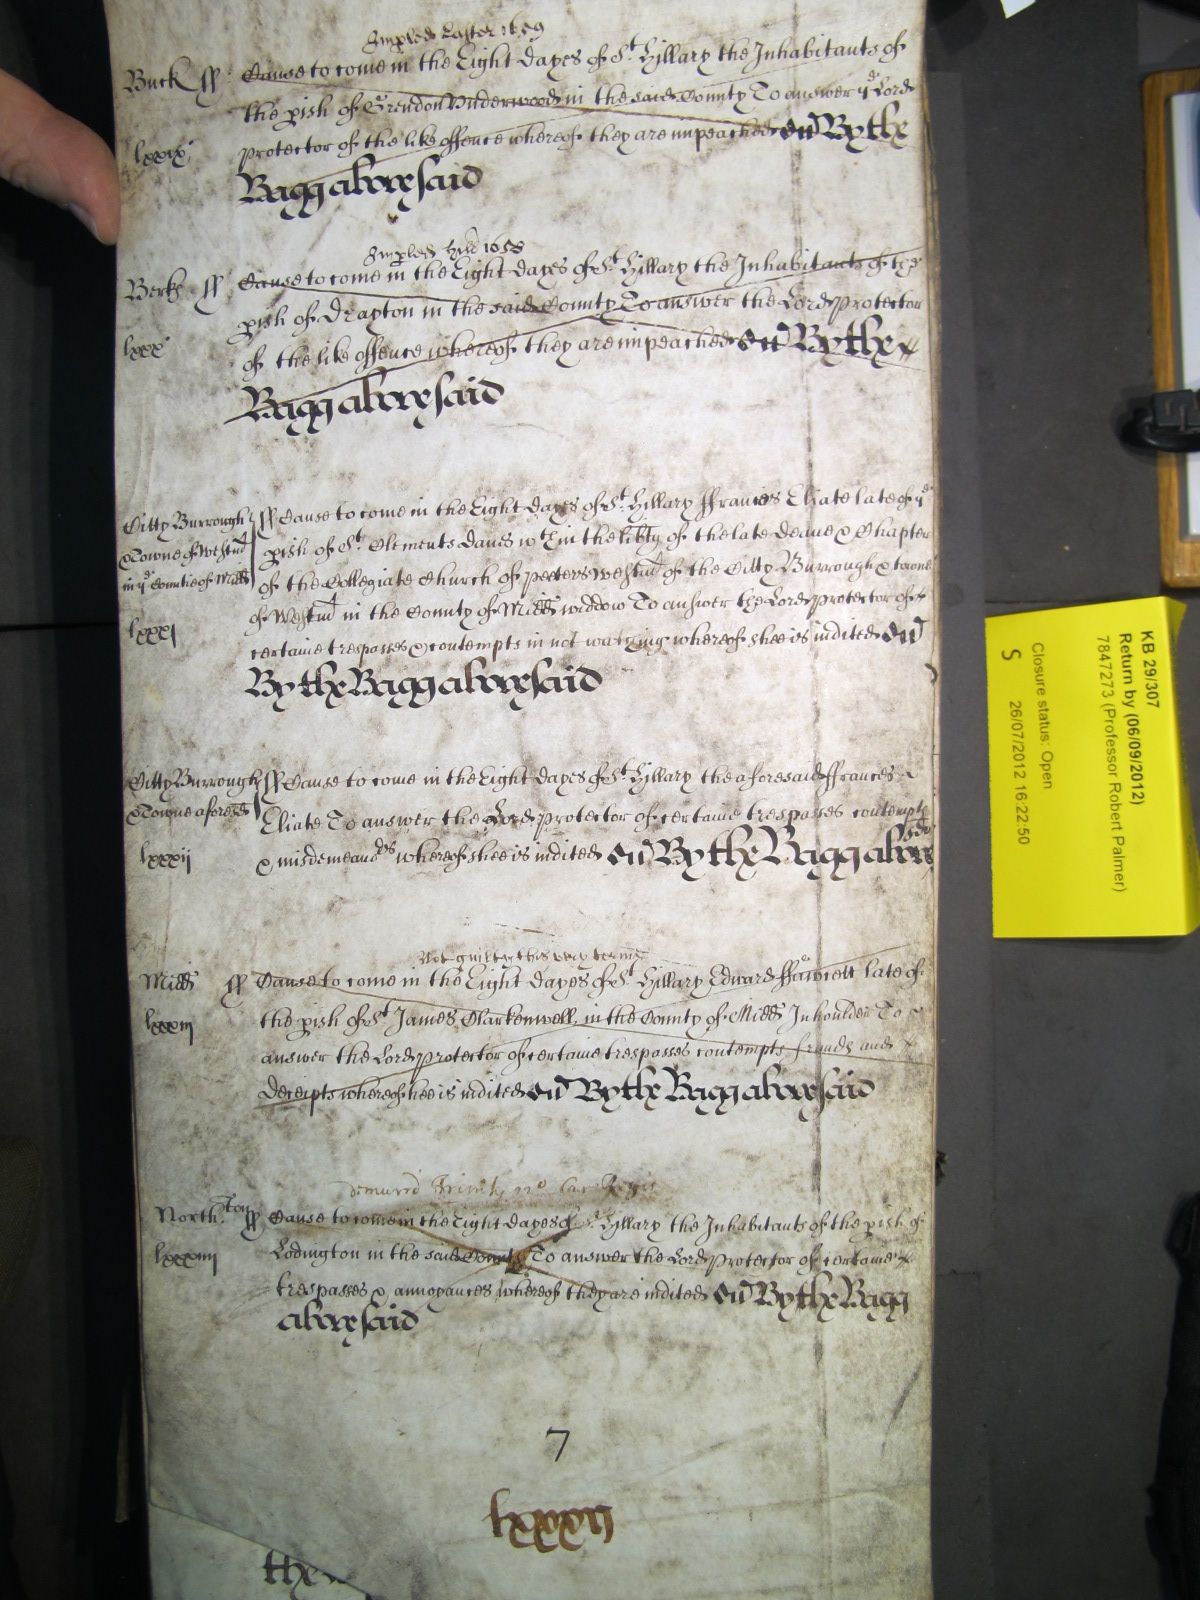 Impled Easter 1659
Buck ss Cause to come in the Eight dayes of St. Hillary the Inhabitants of
the pish of Grendon Underwood in the said County To answer ye Lord
lxxix protector of the like offence whereof they are impeached By the
Bagg abovesaid
Impled Hill 1658
Berk ss Cause to come in the Eight dayes of St. Hillary the Inhabitants of the
pish of Drayton in the said County To answer the Lord protector
lxxx of the like offence whereof they are impeached By the
Bagg abovesaid
Citty Burrough ss Cause to come in the Eight dayes of St. Hillary ffrances Eliate late of ye
& Towne of Westmr pish of St. Clements danes wth in the libty of the late deane & Chapter
in ye Countie of Midd of the Collegiate Church of peeters Westmr of the Citty Burrough & towne
of Westmr in the County of Midd widdow To answer the Lord protector of
lxxxj certaine trespasses & contempts in not whereof shee is indited
By the Bagg abovesaid
Citty Burrough ss Cause to come in the Eight dayes of St. Hillary the aforesaid ffrances
& Towne aforesd Eliate To answer the Lord protector of certaine trespasses contempts
lxxxij & misdemeanors whereof shee is indited By the Bagg above
sd
Not guilty this very terme
Midd ss Cause to come in the Eight dayes of St. Hillary Edward ffawcett late of
lxxxiij the pish of St. James Clarkenwell in the County of Midd Inhoulder To
answer the Lord protector of certaine trespasses contempts frauds and
deceipts whereof hee is indited By the Bagg abovesaid
demurrd Trinity Car Regis
Northton ss Cause to come in the Eight dayes of St. Hillary the Inhabitants of the pish of
lxxxiiij Lodington in the said County To answer the Lord protector of certaine
trespasses & annoyances whereof they are indited By the Bagg
abovesaid
7
lxxxij
the
KB 29/307
Return by (06/09/2012)
7847273 (Professor Robert Palmer)
Closure status: Open
S 26/07/2012 16:22:50